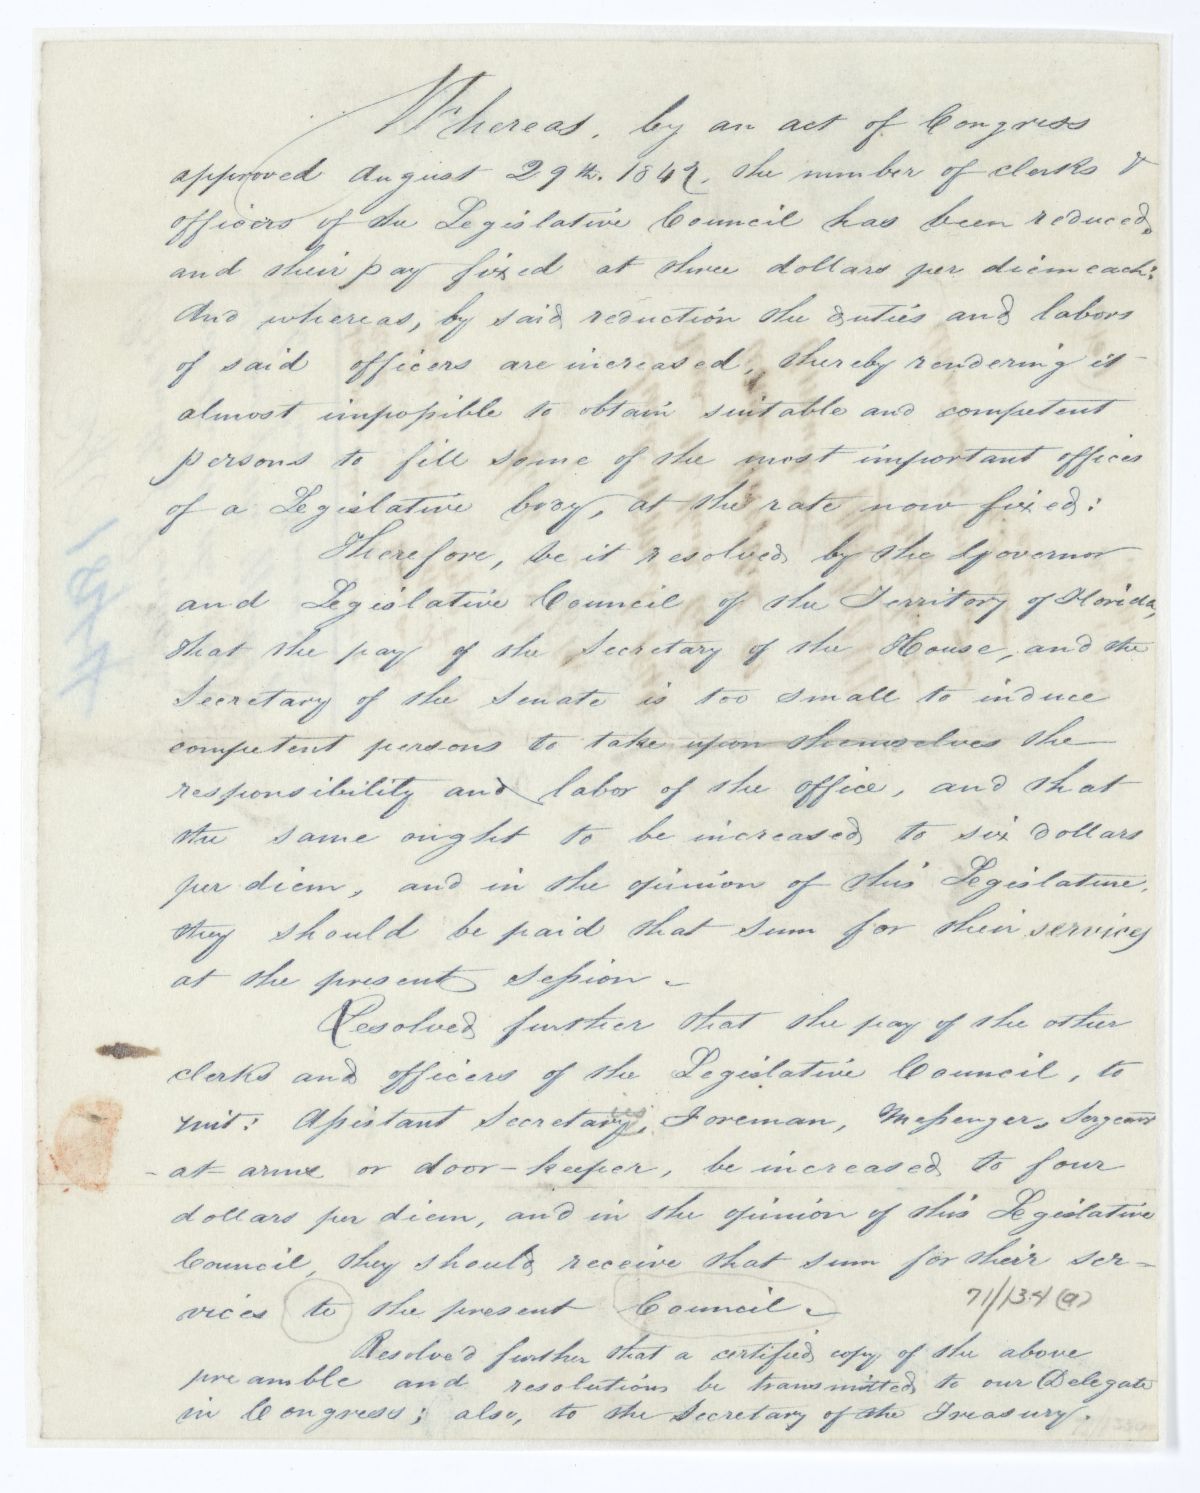 Whereas, by an act of Congress
approved August 29th. 1842, the number of clerks &
officers of the Legislative Council has been reduced,
and their pay fixed at three dollars per diem each:
And whereas, by said reduction the duties and labors
of said officers are increased, thereby rendering it
almost impossible to obtain suitable and competent
persons to fill some of the most important offices
of a Legislative body, at the rate now fixed:
Therefore, be it resolved by the Governor
and Legislative Council of the Territory of Florida,
that the pay of the Secretary of the House, and the
Secretary of the Senate is too small to induce
competent persons to take upon themselves the
responsibility and labor of the office, and that
the same ought to be increased to six dollars
per diem, and in the opinion of this Legislature,
they should be paid that sum for their services
at the present session.
Resolved further that the pay of the other
clerks and officers of the Legislative Council, to
wit: Assistant Secretaries, Foreman, Messenger, Sergeant
-at arms or door-keeper, be increased to four
dollars per diem, and in the opinion of this Legislative
Council, they should receive that sum for their ser-
vices to the present Council.
71/134 (a)
Resolved further that a certified copy of the above
preamble and resolutions be transmitted to our Delegate
in Congress; also, to the Secretary of the Treasury.
1844